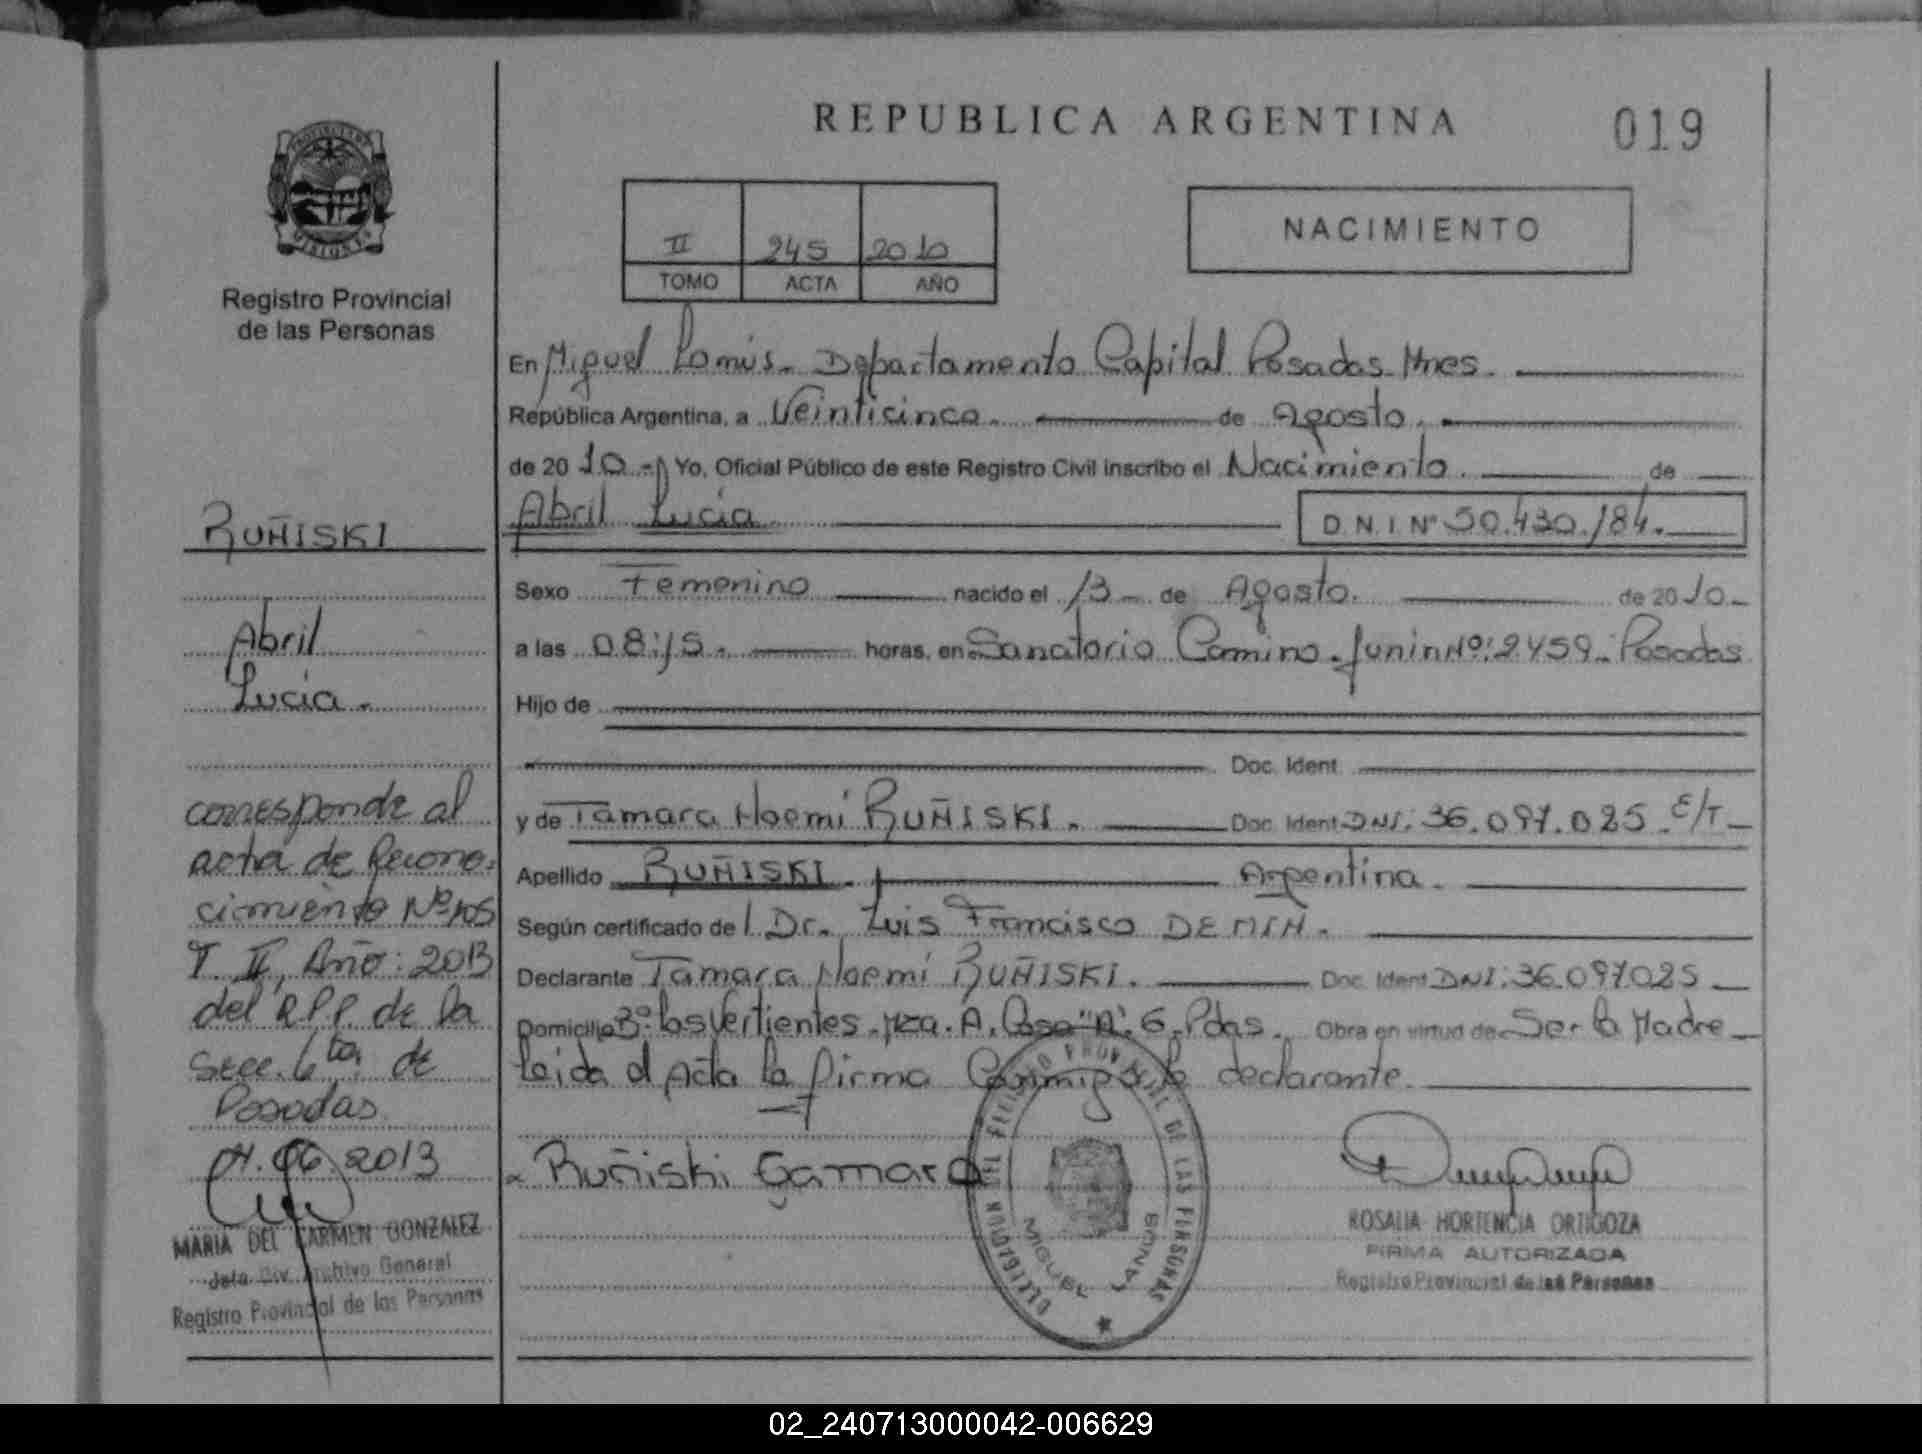 REPUBLICA ARGENTINA
019
PROVINCIA DE
MISIONES
Registro Provincial
de las Personas
II 245 2010
TOMO ACTA AÑO
NACIMIENTO
En Miguel Lanús. Departamento Capital Posadas Mnes.
República Argentina, a Veinticinco. de Agosto.
de 20 10 - Yo, Oficial Público de este Registro Civil inscribo el Nacimiento. de
Abril Lucía D.N.I Nº 50.430.184.
Sexo Femenino nacido el 13 de Agosto. de 20 10.
a las 08:15. horas, en Sanatorio Camino. Junin Nº: 2459. Posadas
Hijo de
Doc. Ident.
y de Tamara Noemí RUÑISKI. Doc. Ident DNI: 36.097.025 E/T
Apellido RUÑISKI. Argentina.
Según certificado de l Dr. Luis Francisco
Declarante Tamara Noemí RUÑISKI. Doc. Ident DNI: 36.097025
Domicilio Bº: las Vertientes. Mza. A. Casa "Nº: 6. Pdas. Obra en virtud de Ser la Madre
Leida el Acta la firma Conmigo la declarante.
Ruñiski Tamara
DELEGACION DEL REGISTRO PROVINCIAL DE LAS PERSONAS
MIGUEL LANUS
ROSALIA HORTENCIA ORTIGOZA
FIRMA AUTORIZADA
Registro Provincial de las Personas
RUÑISKI
Abril
Lucía.
corresponde al
acta de Recono-
cimiento Nº 105
T. II, Año: 2013
del R.P.P de la
Secc. 6ta. de
Posadas
06.2013
MARIA DEL CARMEN GONZALEZ
Jefa Div. Archivo General
Registro Provincial de las Personas
02_240713000042-006629